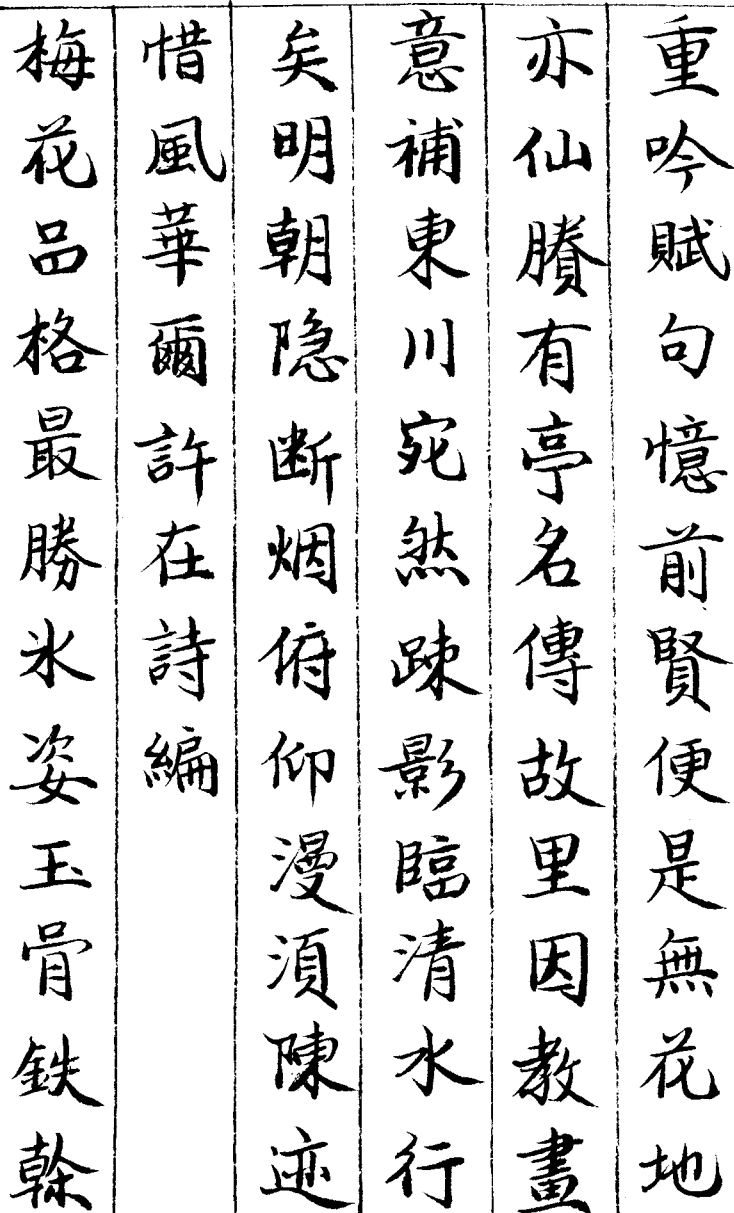 重吟賦句憶前賢便是無花地
亦仙賸有亭名傳故里因教畫
意補東川宛然踈影臨清水行
矣明朝隐断烟俯仰漫湏陳迹
惜風華爾許在詩編
梅花品格最勝氷姿玉骨鉄榦